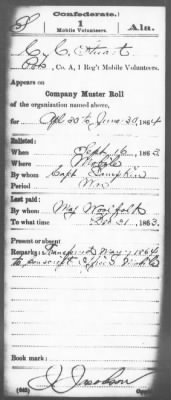 Confederate.
1
Mobile Volunteers.
Ala.
Stuart
Co. A, 1 Reg't Mobile Volunteers.
Appears on
Company Muster Roll
of the organization named above,
for Apl 30 to June 30, 1864
Enlisted:
When Sept 16, 1863
Where Mobile
By whom Capt
Period War
Last paid:
By whom Maj Woolfolk
To what time Dec 31, 1863.
Present or absent
Remarks: Transferred May 1 1864
to conscript
Book mark:
(642)